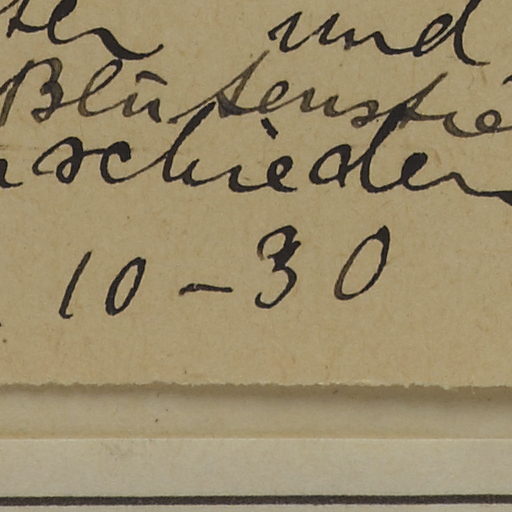 ter und
Blütenstie
nschieden
10-30